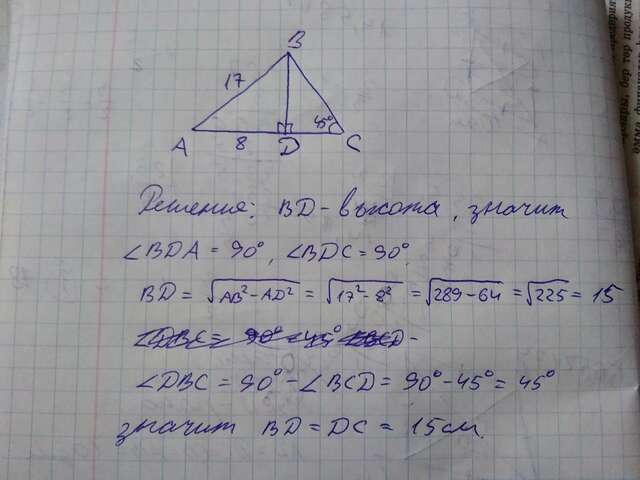 B
17
45°
A
8
D
C
Решение: BD - высота, значит
∠BDA = 90°, ∠BDC = 90°
BD = √AB² - AD² = √17² - 8² = √289 - 64 = √225 = 15
∠DBC = 90° - ∠BCD = 90° - 45° = 45°
значит BD = DC = 15см.